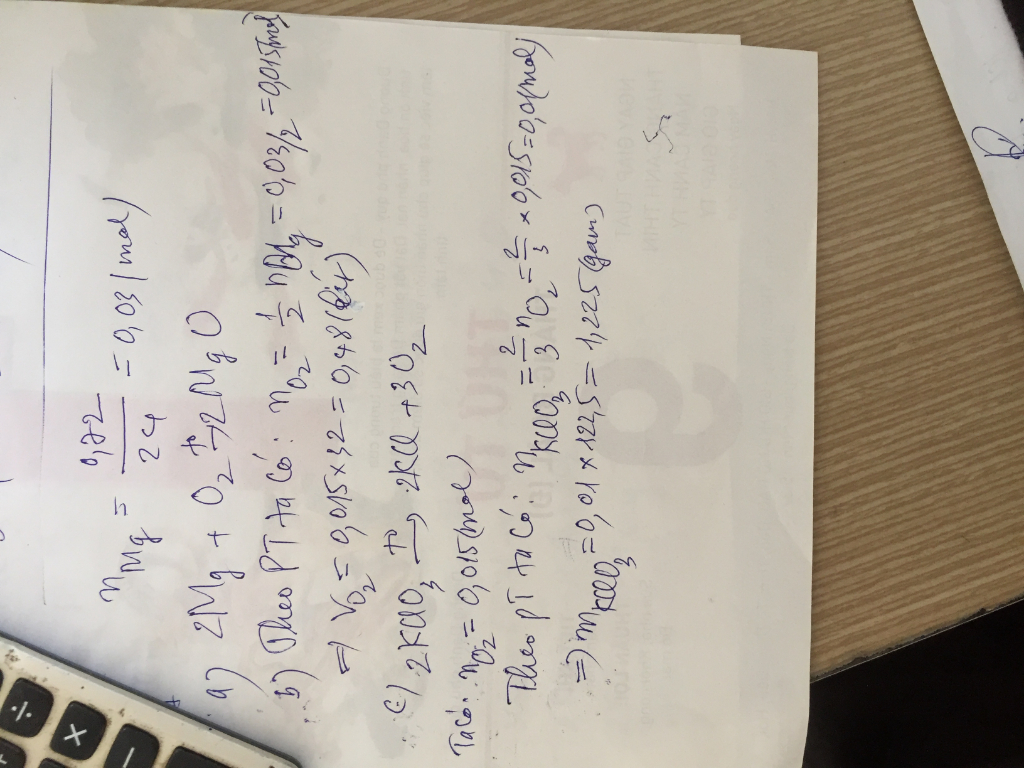 nMg = 0,72/24 = 0,03 (mol)
a) 2Mg + O2 t° → 2MgO
b) Theo PT ta có: nO2 = 1/2 nMg = 0,03/2 = 0,015(mol)
⇒ VO2 = 0,015 × 32 = 0,48 (lít)
c) 2KClO3 t° → 2KCl + 3O2
Ta có: nO2 = 0,015(mol)
Theo PT ta có: nKClO3 = 2/3 nO2 = 2/3 × 0,015 = 0,01(mol)
⇒ mKClO3 = 0,01 × 122,5 = 1,225 (gam)